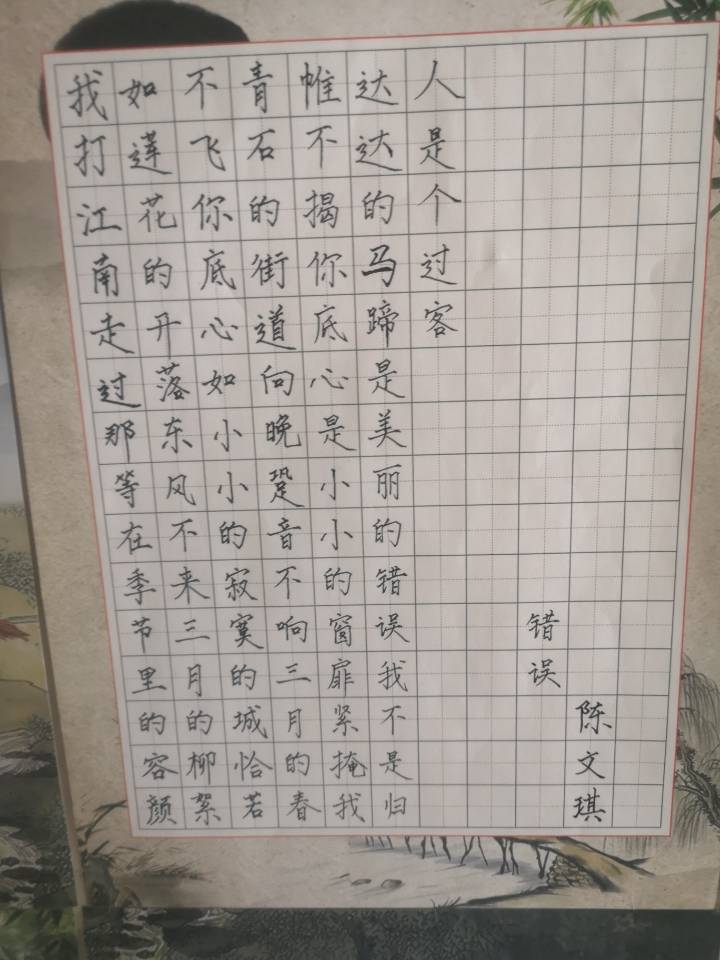 我打江南走过那等在季节里的容颜
如莲花的开落东风不来三月的柳絮
不飞你底心如小小的寂寞的城恰若
青石的街道向晚跫音不响三月的春
帷不揭你底心是小小的窗扉紧掩我
达达的马蹄是美丽的错误我不是归
人是个过客
错误
陈文琪